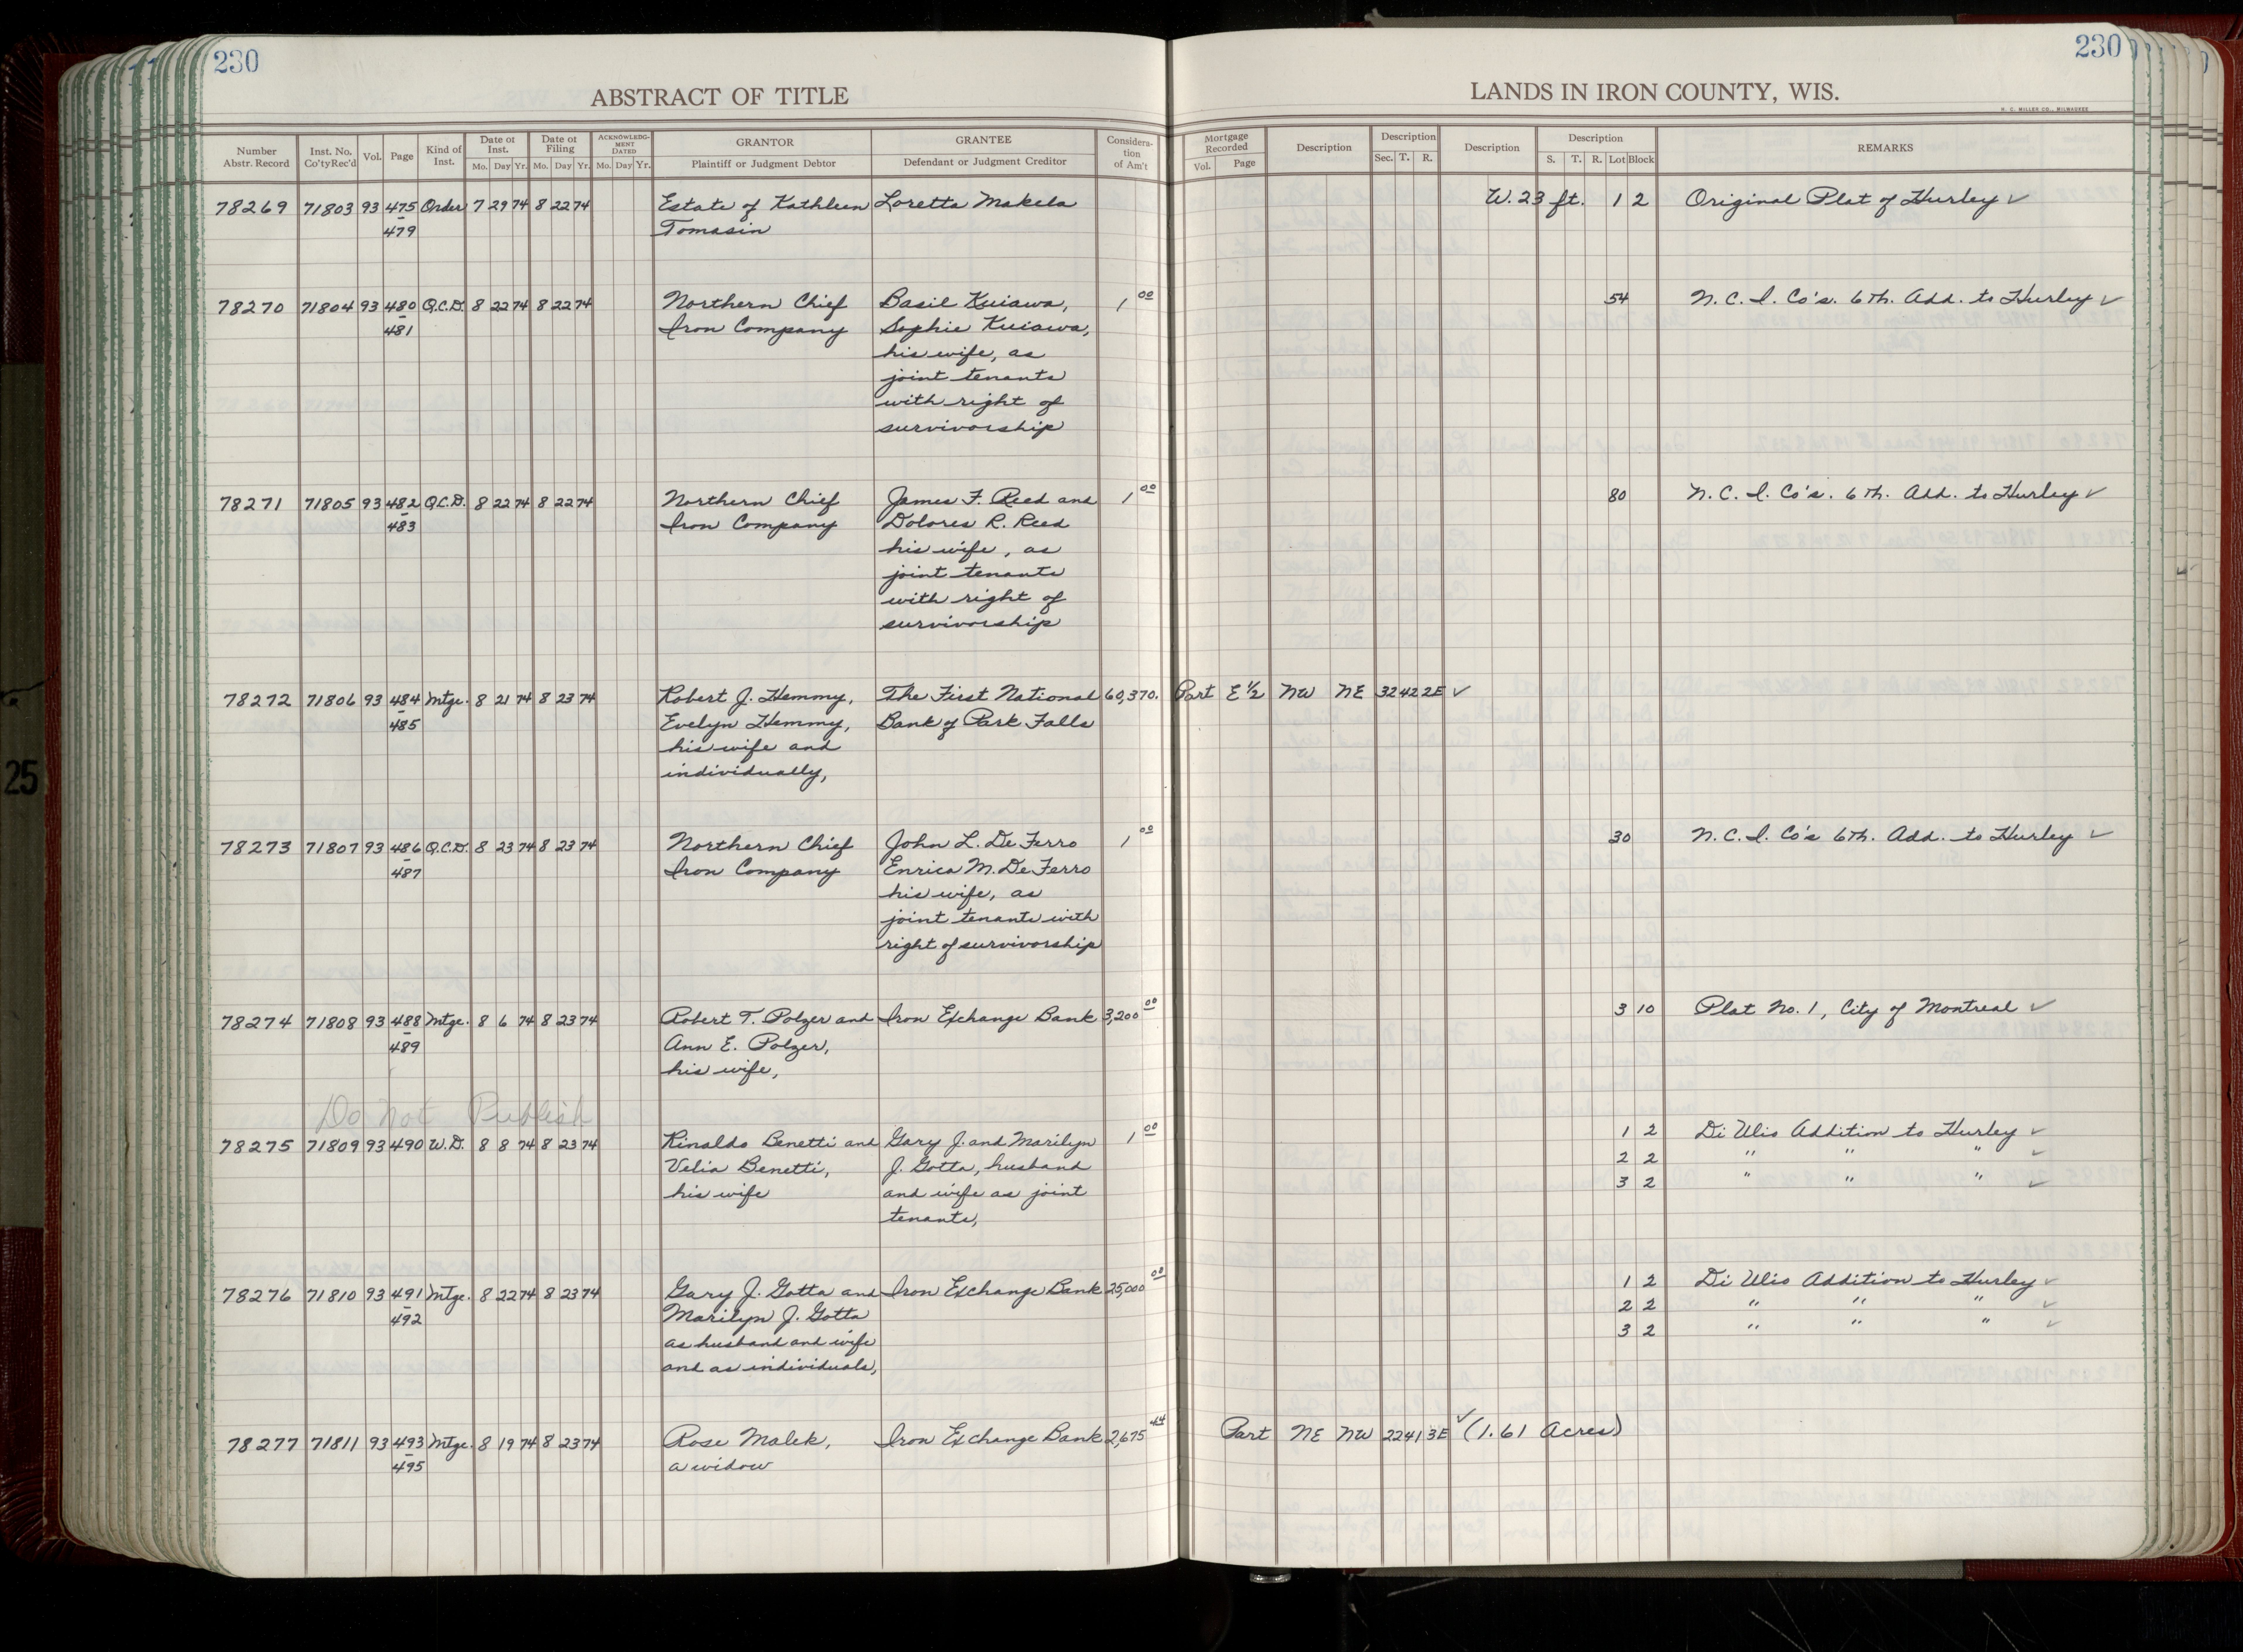 230
230
ABSTRACT OF TITLE
LANDS IN IRON COUNTY, WIS.
H. C. MILLER CO., MILWAUKEE
Number Abstr. Record | Inst. No. Co'ty Rec'd | Vol. | Page | Kind of Inst. | Date of Inst. Mo. Day Yr. | Date of Filing Mo. Day Yr. | ACKNOWLEDGMENT DATED Mo. Day Yr. | GRANTOR Plaintiff or Judgment Debtor | GRANTEE Defendant or Judgment Creditor | Consideration of Am't | Mortgage Recorded Vol. Page | Description | Description Sec. T. R. | Description | Description S. T. R. Lot Block | REMARKS
78269 71803 93 475 Order 7 29 74 8 22 74 Estate of Kathleen Loretta Makela W. 23 ft. 1 2 Original Plat of Hurley ✓
479 Tomasin
78270 71804 93 480 Q.C.D. 8 22 74 8 22 74 Northern Chief Basil Kuiawa, 1 00 54 N. C. I. Co's. 6th. Add. to Hurley ✓
481 Iron Company Sophie Kuiawa,
his wife, as
joint tenants
with right of
survivorship
78271 71805 93 482 Q.C.D. 8 22 74 8 22 74 Northern Chief James F. Reed and 1 00 80 N. C. I. Co's. 6th. Add. to Hurley ✓
483 Iron Company Dolores R. Reed
his wife, as
joint tenants
with right of
survivorship
78272 71806 93 484 Mtge. 8 21 74 8 23 74 Robert J. Hemmy, The First National 60,370. Part E ½ NW NE 32 42 2E ✓
485 Evelyn Hemmy, Bank of Park Falls
his wife and
individually,
78273 71807 93 486 Q.C.D. 8 23 74 8 23 74 Northern Chief John L. De Ferro 1 00 30 N. C. I. Co's 6th. Add. to Hurley ✓
487 Iron Company Enrica M. De Ferro
his wife, as
joint tenants with
right of survivorship
78274 71808 93 488 Mtge. 8 6 74 8 23 74 Robert T. Polzer and Iron Exchange Bank 3,200 00 3 10 Plat No. 1, City of Montreal ✓
489 Ann E. Polzer,
his wife,
Do not Publish
78275 71809 93 490 W.D. 8 8 74 8 23 74 Rinaldo Benetti and Gary J. and Marilyn 1 00 1 2 Di Ulio Addition to Hurley ✓
Velia Benetti, J. Gotta, husband 2 2 " " " ✓
his wife and wife as joint 3 2 " " " ✓
tenants,
78276 71810 93 491 Mtge. 8 22 74 8 23 74 Gary J. Gotta and Iron Exchange Bank 25,000 00 1 2 Di Ulio Addition to Hurley ✓
492 Marilyn J. Gotta 2 2 " " " ✓
as husband and wife 3 2 " " " ✓
and as individuals,
78277 71811 93 493 Mtge. 8 19 74 8 23 74 Rose Malek, Iron Exchange Bank 2,675 44 Part NE NW 22 41 3E ✓ (1.61 Acres)
495 a widow
25